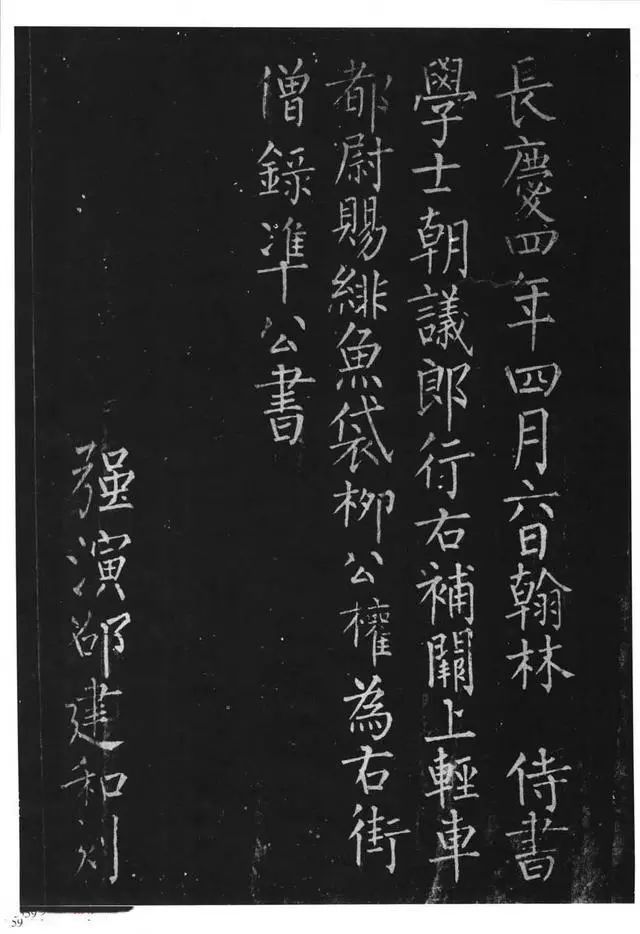 長慶四年四月六日翰林 侍書
學士朝議郎行右補闕上輕車
都尉賜緋魚袋柳公權為右街
僧錄準公書
强演邵建和刻
59